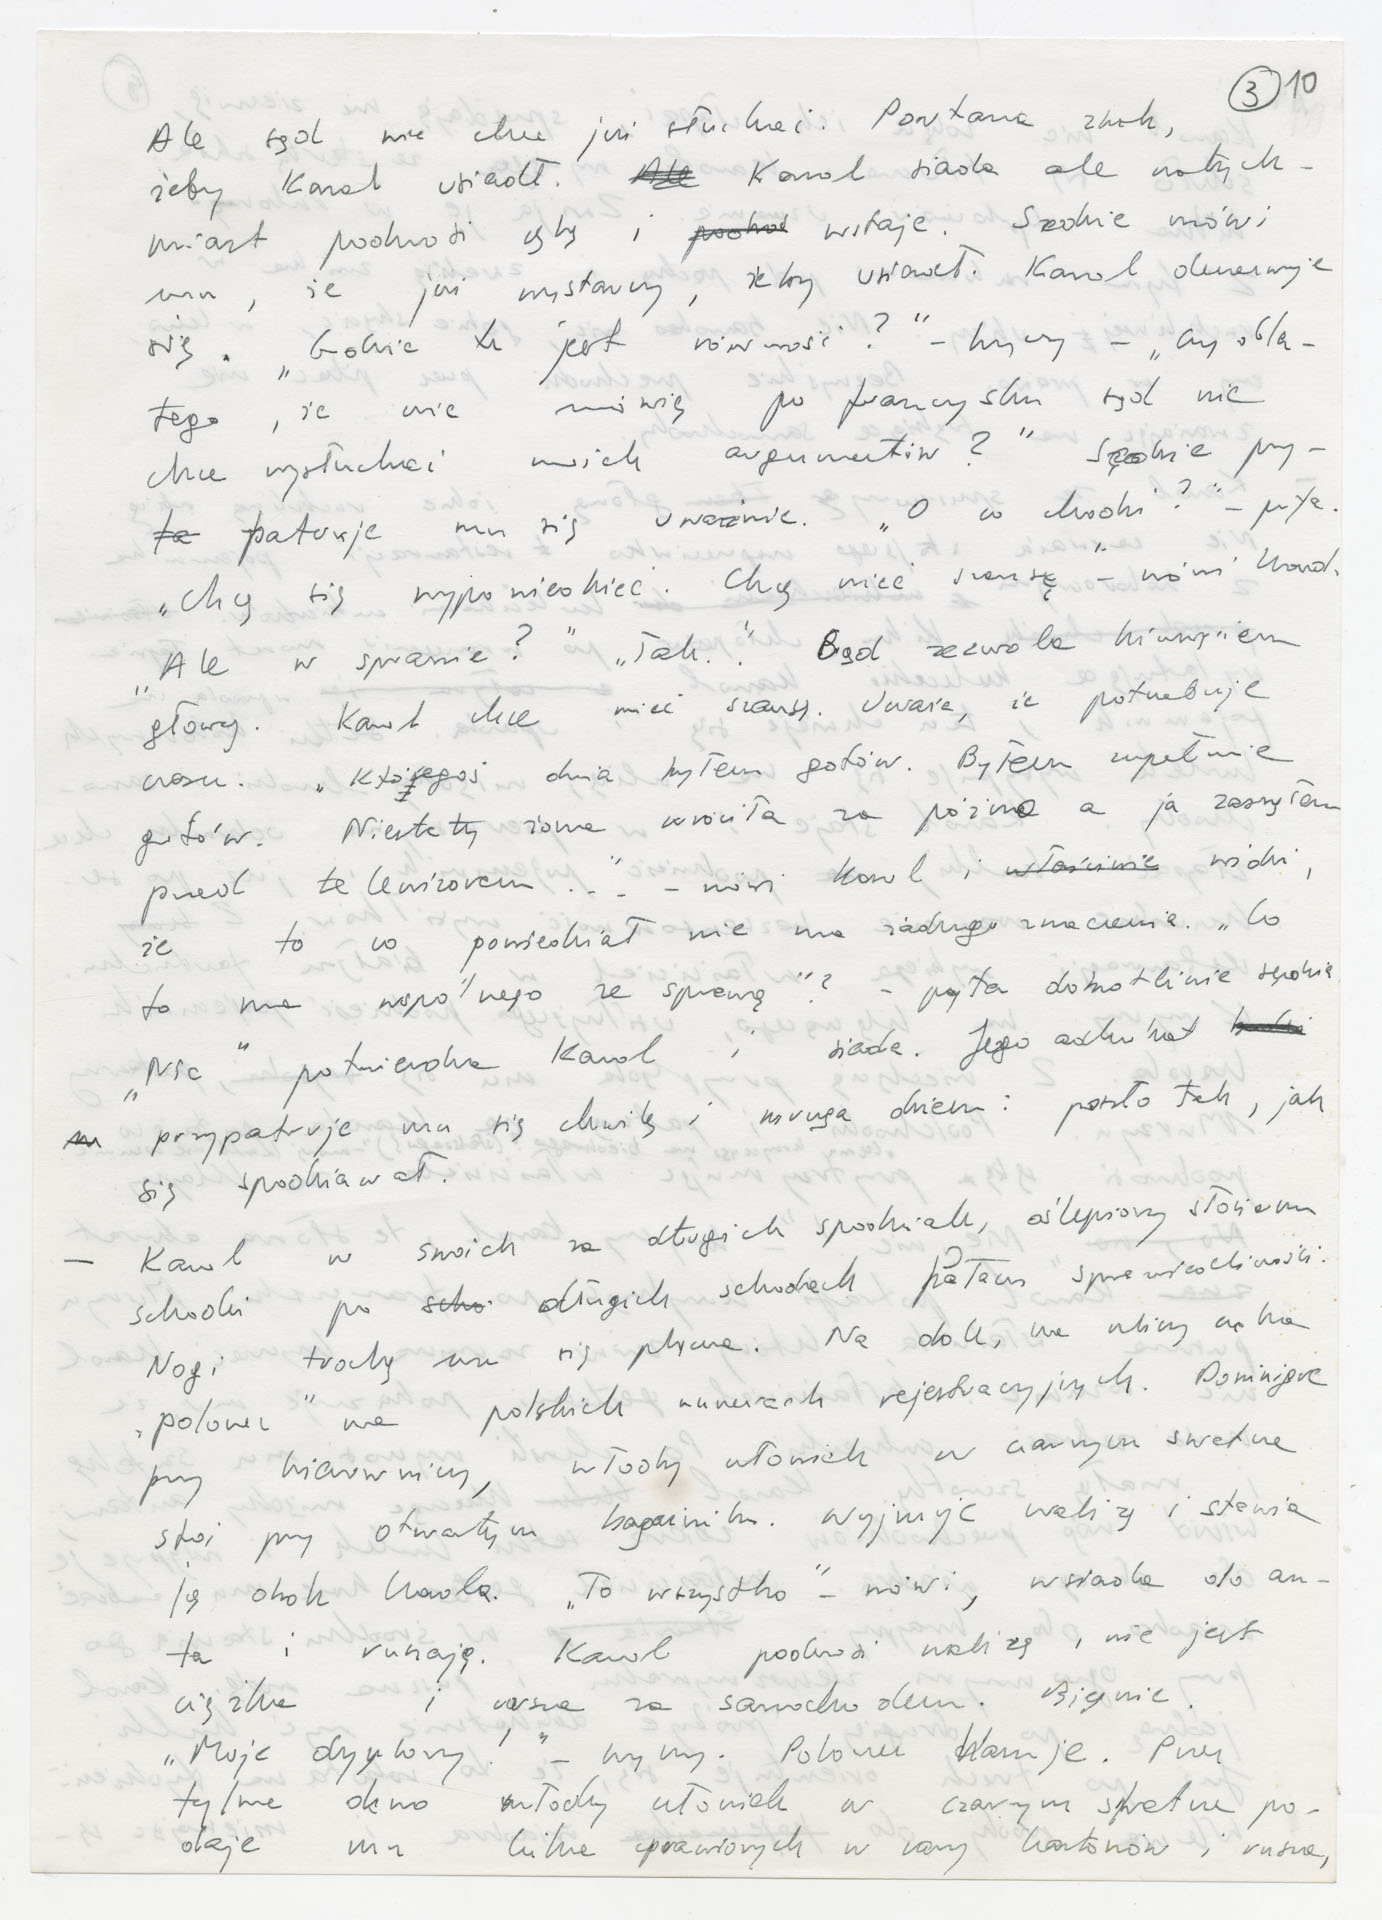 ③ 10
Ale sąd nie chce już słuchać. Powtarza znak,
żeby Karol usiadł. Ale Karol siada ale natych-
miast podnosi rękę i podnos wstaje. Sędzie mówi
mu, że już wystarczy, żeby usiadł. Karol denerwuje
się. „Gdzie tu jest równość?" – krzyczy – „czy dla-
tego, że nie mówię po francusku sąd nie
chce wysłuchać moich argumentów?" Sędzie przy-
ta patruje mu się uważnie. „O co chodzi?" – pyta.
„Chcę się wypowiedzieć. Chcę mieć szansę" – mówi Karol.
„Ale w sprawie?" „Tak." Sąd zezwala kiwnięciem
głowy. Karol chce mieć szansę. Uważa, że potrzebuje
czasu. „Któregoś dnia byłem gotów. Byłem zupełnie
gotów. Niestety żona wróciła za późno a ja zasnąłem
przed telewizorem..." – mówi Karol i właściwie widzi,
że to co powiedział nie ma żadnego znaczenia. „Co
to ma wspólnego ze sprawą"? – pyta dobrotliwie sędzia
„Nic" potwierdza Karol i siada. Jego adwokat
przypatruje mu się chwilę i mruga okiem: poszło tak, jak
się spodziewał.
– Karol w swoich za długich spodniach, oślepiony słońcem
schodzi po scho długich schodach Pałacu sprawiedliwości.
Nogi trochę mu się plączą. Na dole, na ulicy czeka
„polonez" na polskich numerach rejestracyjnych. Dominique
przy kierownicy, młody człowiek w czarnym swetrze
stoi przy otwartym bagażniku. Wyjmuje walizę i stawia
ją obok Karola. „To wszystko" – mówi, wsiada do au-
ta i ruszają. Karol podnosi walizę, nie jest
ciężka i rusza za samochodem. Biegnie.
„Moje dyplomy!" – krzyczy. Polonez hamuje. Przez
tylne okno młody człowiek w czarnym swetrze po-
daje mu kilka oprawionych w ramy kartonów i rusza,